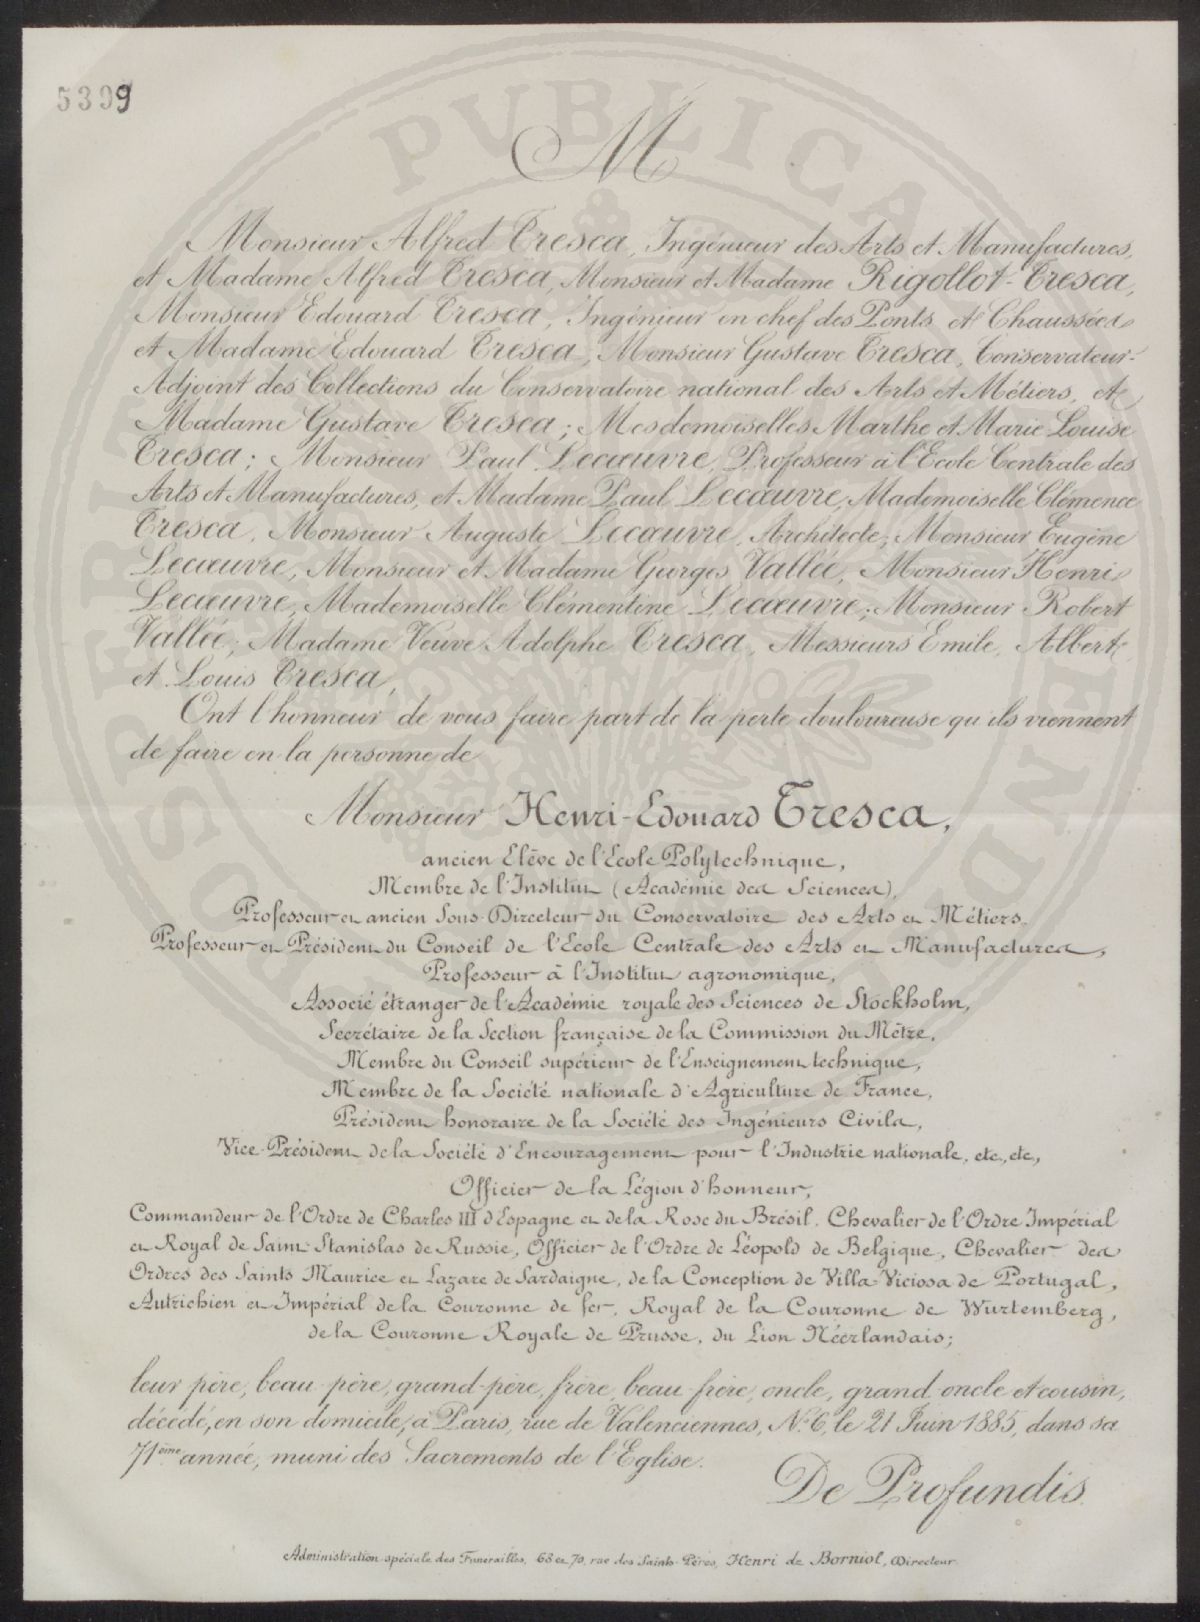 5399
M
Monsieur Alfred Tresca, Ingénieur des Arts et Manufactures,
et Madame Alfred Tresca, Monsieur et Madame Rigollot-Tresca,
Monsieur Edouard Tresca, Ingénieur en chef des Ponts et Chaussées
et Madame Edouard Tresca, Monsieur Gustave Tresca, Conservateur-
Adjoint des Collections du Conservatoire national des Arts et Métiers, et
Madame Gustave Tresca; Mesdemoiselles Marthe et Marie Louise
Tresca; Monsieur Paul Lecœuvre, Professeur à l'Ecole Centrale des
Arts et Manufactures, et Madame Paul Lecœuvre, Mademoiselle Clémence
Tresca, Monsieur Auguste Lecœuvre, Architecte; Monsieur Eugène
Lecœuvre, Monsieur et Madame Georges Vallée, Monsieur Henri
Lecœuvre, Mademoiselle Clémentine Lecœuvre; Monsieur Robert
Vallée; Madame Veuve Adolphe Tresca, Messieurs Emile, Albert
et Louis Tresca,
Ont l'honneur de vous faire part de la perte douloureuse qu'ils viennent
de faire en la personne de
Monsieur Henri-Edouard Tresca,
ancien Elève de l'Ecole Polytechnique,
Membre de l'Institut (Académie des Sciences),
Professeur et ancien Sous-Directeur du Conservatoire des Arts et Métiers.
Professeur et Président du Conseil de l'Ecole Centrale des Arts et Manufactures,
Professeur à l'Institut agronomique,
Associé étranger de l'Académie royale des Sciences de Stockholm,
Secrétaire de la Section française de la Commission du Mètre,
Membre du Conseil supérieur de l'Enseignement technique,
Membre de la Société nationale d'Agriculture de France,
Président honoraire de la Société des Ingénieurs Civils,
Vice-Président de la Société d'Encouragement pour l'Industrie nationale, etc., etc.,
Officier de la Légion d'honneur,
Commandeur de l'Ordre de Charles III d'Espagne et de la Rose du Brésil, Chevalier de l'Ordre Impérial
et Royal de Saint-Stanislas de Russie, Officier de l'Ordre de Léopold de Belgique, Chevalier des
Ordres des Saints Maurice et Lazare de Sardaigne, de la Conception de Villa-Viciosa de Portugal,
Autrichien et Impérial de la Couronne de fer, Royal de la Couronne de Wurtemberg,
de la Couronne Royale de Prusse, du Lion Néerlandais;
leur père, beau-père, grand-père, frère, beau-frère, oncle, grand oncle et cousin,
décédé, en son domicile, à Paris, rue de Valenciennes, N.º 6, le 21 Juin 1885, dans sa
71ème année, muni des Sacrements de l'Eglise.
De Profundis.
Administration spéciale des Funérailles, 68 et 70, rue des Saints-Pères, Henri de Borniol, Directeur.